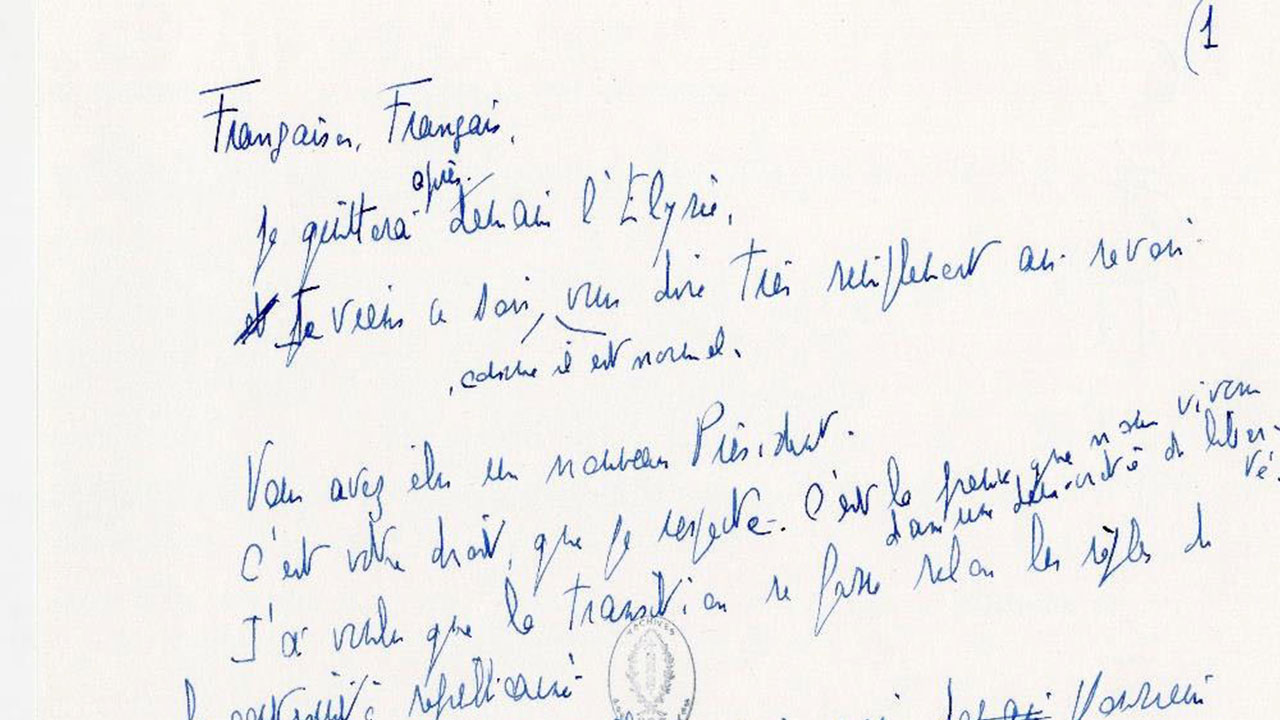 (1
Françaises, Français,
après-
Je quitterai demain l'Elysée,
et Je viens ce soir, vous dire très simplement au revoir
, comme il est normal,
Vous avez élu un nouveau Président.
C'est votre droit, que je respecte. C'est la preuve que nous vivons
dans une démocratie de liber-
té.
J'ai voulu que la transition se fasse selon les règles de
la continuité républicaine
ARCHIVES
demain Monsieur